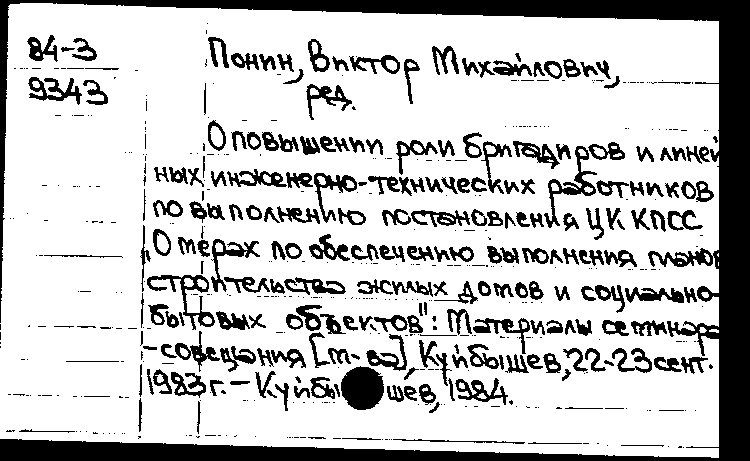 84-3
9343
Понин, Виктор Михайлович,
ред.
О повышении роли бригадиров и линей
ных инженерно-технических работников
по выполнению постановления ЦК КПСС
„О мерах по обеспечению выполнения планов
строительства жилых домов и социально-
бытовых объектов": Материалы семинара
-совещания [м-ва], Куйбышев, 22-23 сент.
1983 г. – Куйбышев, 1984.